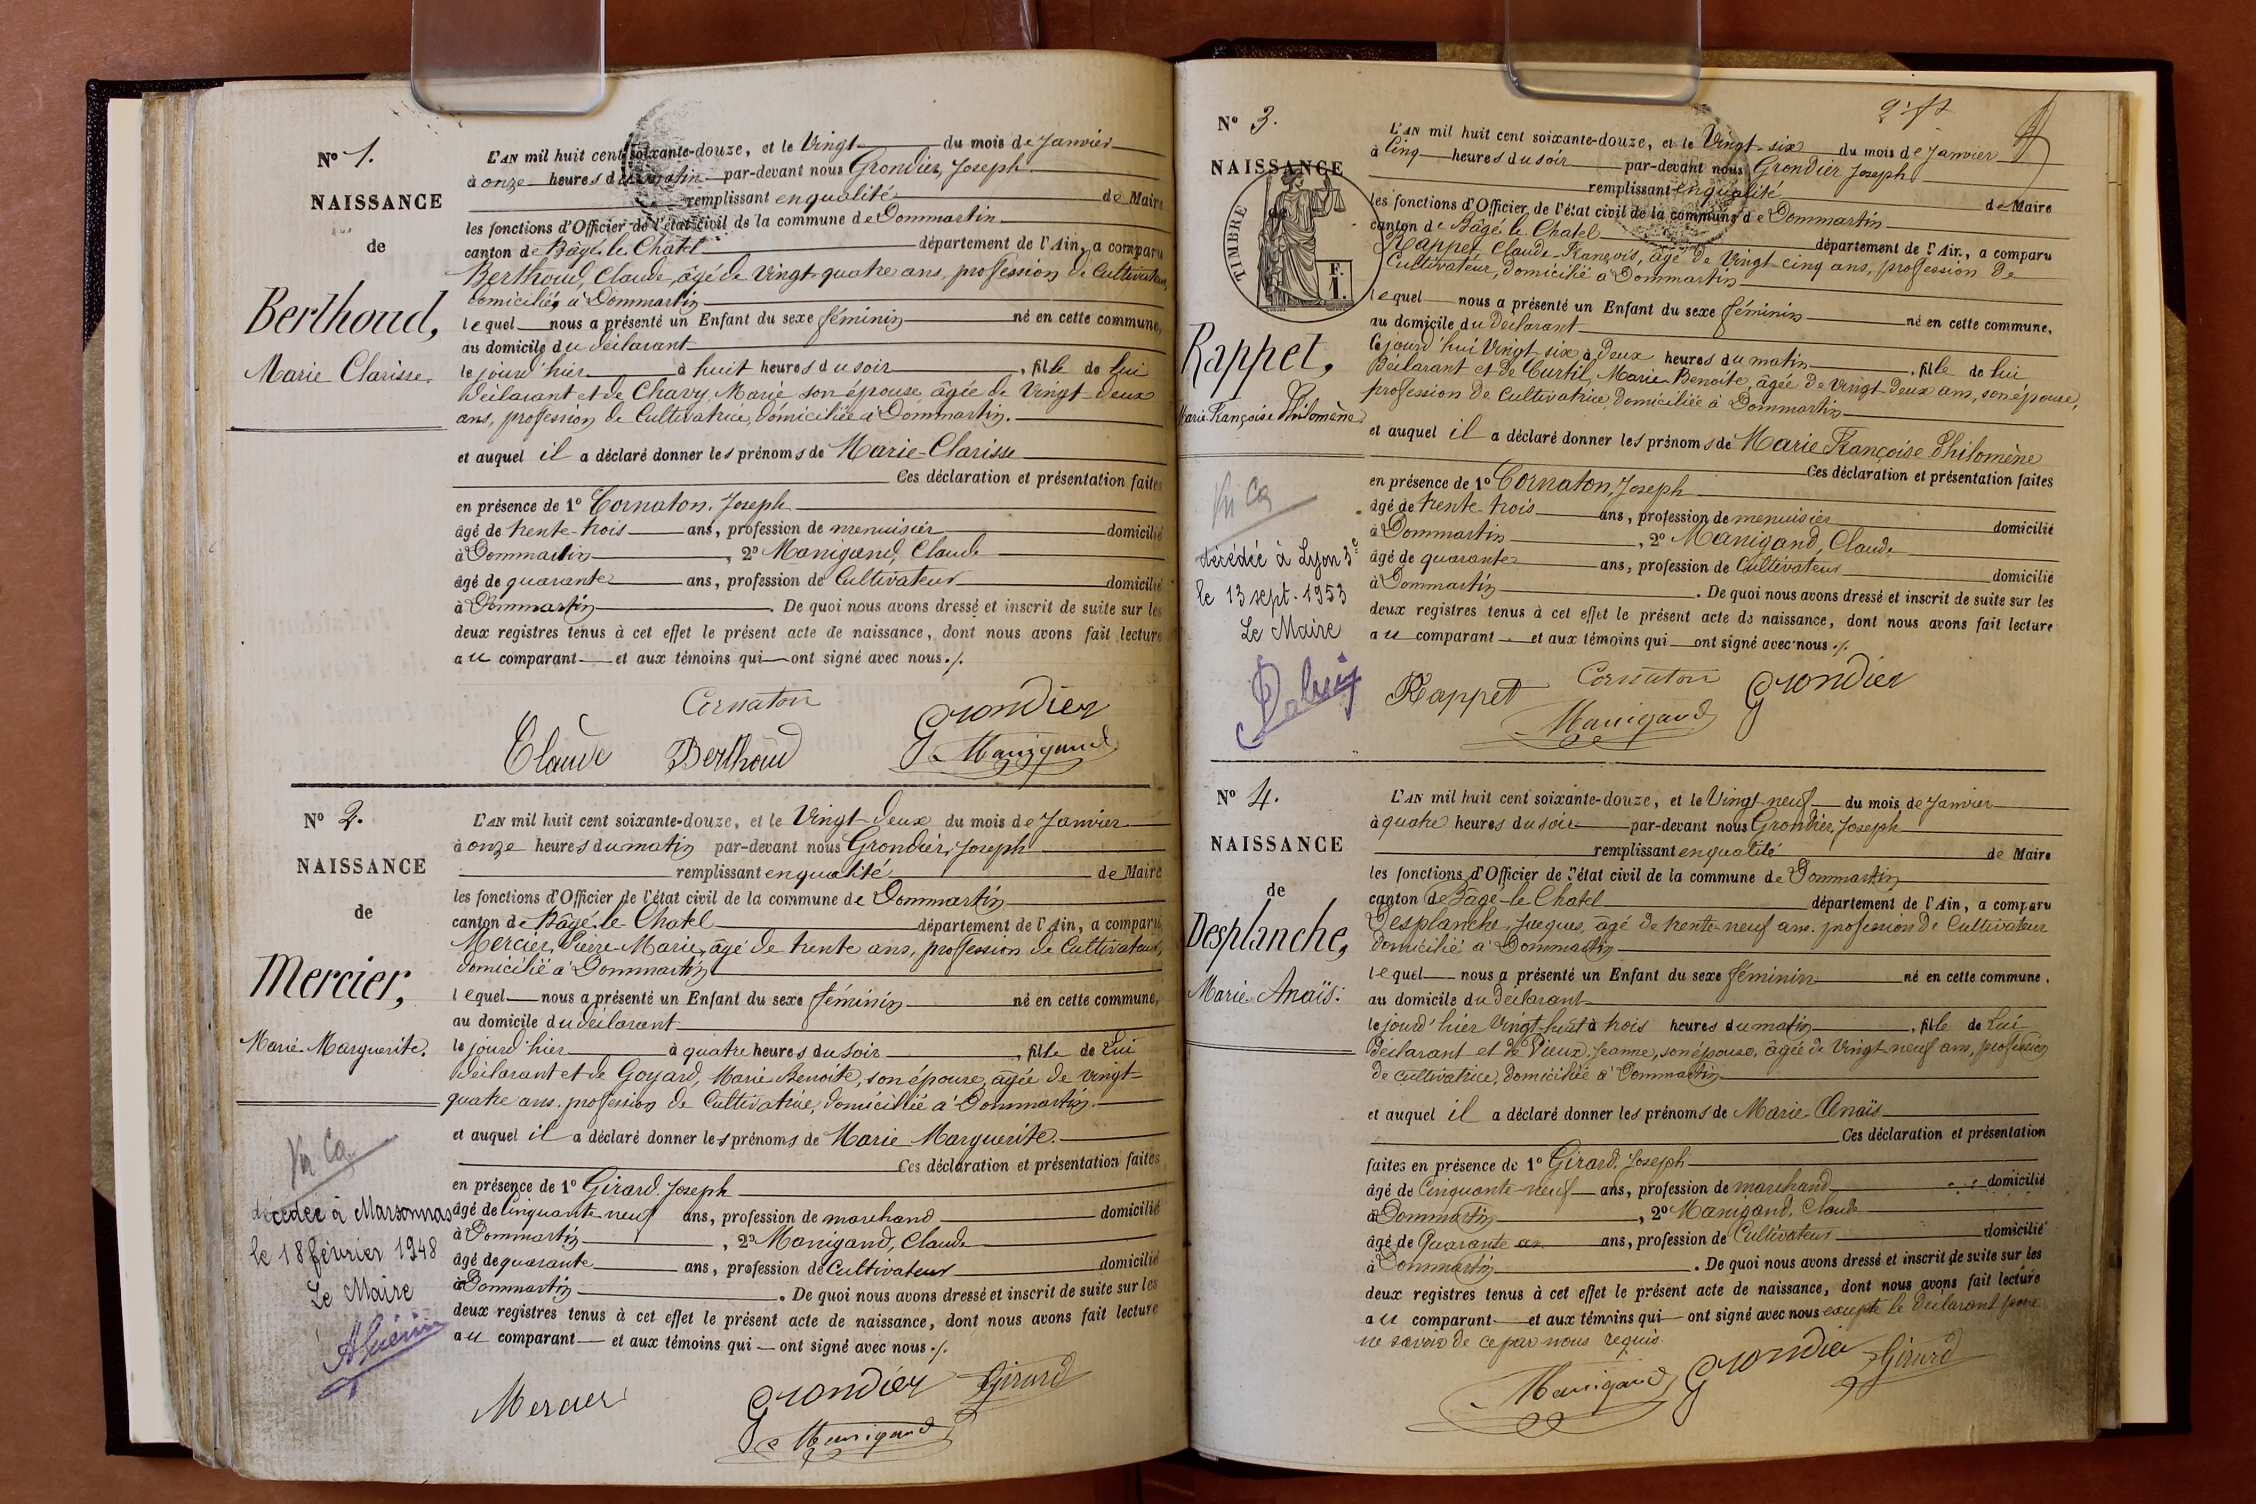 N° 1.
NAISSANCE
de
Berthoud,
Marie Clarisse.
L'AN mil huit cent soixante-douze, et le Vingt du mois de Janvier
à onze heures du matin par-devant nous Grondier, Joseph
remplissant en qualité de Maire
les fonctions d'Officier de l'état civil de la commune de Dommartin
canton de Bâgé-le-Chatel département de l'Ain, a comparu
Berthoud, Claude, âgé de Vingt-quatre ans, profession de Cultivateur,
domicilié, à Dommartin
lequel nous a présenté un Enfant du sexe féminin né en cette commune,
au domicile du déclarant
le jourd'hier à huit heures du soir, fille de lui
Déclarant et de Chavy, Marie son épouse, âgée de Vingt-deux
ans, profession de Cultivatrice, domiciliée à Dommartin.
et auquel il a déclaré donner les prénoms de Marie-Clarisse
Ces déclaration et présentation faites
en présence de 1° Cornaton, Joseph
âgé de trente-trois ans, profession de menuisier domicilié
à Dommartin, 2° Manigand, Claude
âgé de quarante ans, profession de Cultivateur domicilié
à Dommartin. De quoi nous avons dressé et inscrit de suite sur les
deux registres tenus à cet effet le présent acte de naissance, dont nous avons fait lecture
au comparant et aux témoins qui ont signé avec nous ./.
Cornaton
Grondier
Claude Berthoud
Manigand
N° 2.
NAISSANCE
de
Mercier,
Marie-Marguerite.
Vu
décédée à Marsonnas
le 18 février 1948
Le Maire
L'AN mil huit cent soixante-douze, et le Vingt-deux du mois de Janvier
à onze heures du matin par-devant nous Grondier, Joseph
remplissant en qualité de Maire
les fonctions d'Officier de l'état civil de la commune de Dommartin
canton de Bâgé-le-Chatel département de l'Ain, a comparu
Mercier, Pierre-Marie, âgé de trente ans, profession de Cultivateur,
domicilié à Dommartin
lequel nous a présenté un Enfant du sexe féminin né en cette commune,
au domicile du déclarant
le jourd'hier à quatre heures du soir, fille de Lui
Déclarant et de Goyard, Marie Benoîte, son épouse, âgée de vingt-
quatre ans, profession de Cultivatrice, domiciliée à Dommartin.
et auquel il a déclaré donner les prénoms de Marie-Marguerite.
Ces déclaration et présentation faites
en présence de 1° Girard, Joseph
âgé de Cinquante-neuf ans, profession de marchand domicilié
à Dommartin, 2° Manigand, Claude
âgé de quarante ans, profession de Cultivateur domicilié
à Dommartin. De quoi nous avons dressé et inscrit de suite sur les
deux registres tenus à cet effet le présent acte de naissance, dont nous avons fait lecture
au comparant et aux témoins qui ont signé avec nous ./.
Mercier
Grondier
Girard
Manigand
N° 3.
NAISSANCE
de
TIMBRE
F.
1.
Rappet,
Marie Françoise Philomène
Vu
décédée à Lyon 3e
le 13 sept. 1953
Le Maire
L'AN mil huit cent soixante-douze, et le Vingt-six du mois de Janvier
à Cinq heures du soir par-devant nous Grondier Joseph
remplissant en qualité de Maire
les fonctions d'Officier de l'état civil de la commune de Dommartin
canton de Bâgé-le-Chatel département de l'Ain, a comparu
Rappet Claude-François, âgé de Vingt-cinq ans, profession de
Cultivateur, domicilié à Dommartin
lequel nous a présenté un Enfant du sexe féminin né en cette commune,
au domicile du déclarant
Ce jourd'hui Vingt-six à deux heures du matin, fille de lui
Déclarant et de Curtil, Marie-Benoîte, âgée de vingt-deux ans, son épouse,
profession de cultivatrice, domiciliée à Dommartin
et auquel il a déclaré donner les prénoms de Marie Françoise Philomène
Ces déclaration et présentation faites
en présence de 1° Cornaton, Joseph
âgé de trente-trois ans, profession de menuisier domicilié
à Dommartin, 2° Manigand, Claude
âgé de quarante ans, profession de Cultivateur domicilié
à Dommartin. De quoi nous avons dressé et inscrit de suite sur les
deux registres tenus à cet effet le présent acte de naissance, dont nous avons fait lecture
au comparant et aux témoins qui ont signé avec nous ./.
Rappet
Cornaton
Grondier
Manigand
N° 4.
NAISSANCE
de
Desplanche,
Marie-Anaïs.
L'AN mil huit cent soixante-douze, et le Vingt-neuf du mois de Janvier
à quatre heures du soir par-devant nous Grondier, Joseph
remplissant en qualité de Maire
les fonctions d'Officier de l'état civil de la commune de Dommartin
canton de Bâgé-le-Chatel département de l'Ain, a comparu
Desplanche, Jacques, âgé de trente-neuf ans, profession de Cultivateur
domicilié à Dommartin
lequel nous a présenté un Enfant du sexe féminin né en cette commune,
au domicile du déclarant
le jourd'hier Vingt-huit à trois heures du matin, fille de Lui
Déclarant et de Vieux, Jeanne, son épouse, âgée de Vingt-neuf ans, profession
de cultivatrice, domiciliée à Dommartin
et auquel il a déclaré donner les prénoms de Marie-Anaïs
Ces déclaration et présentation
faites en présence de 1° Girard, Joseph
âgé de Cinquante-neuf ans, profession de marchand domicilié
à Dommartin, 2° Manigand, Claude
âgé de Quarante an ans, profession de Cultivateur domicilié
à Dommartin. De quoi nous avons dressé et inscrit de suite sur les
deux registres tenus à cet effet le présent acte de naissance, dont nous avons fait lecture
au comparant et aux témoins qui ont signé avec nous excepté le déclarant pour
ne savoir de ce par nous requis.
Manigand
Grondier
Girard